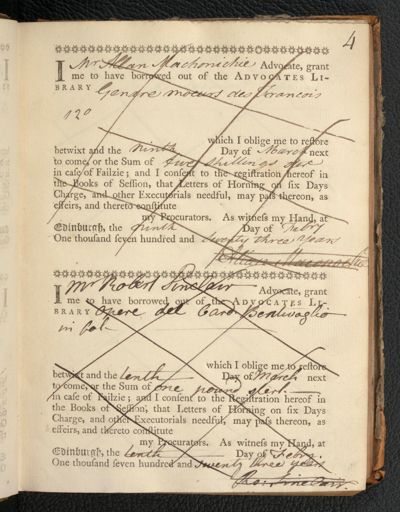 4
I Mr Allan Machonichie Advocate, grant
me to have borrowed out of the ADVOCATES LI-
BRARY Gendre moeurs des francois
12º
which I oblige me to reſtore
betwixt and the ninth Day of March next
to come, or the Sum of five shillings
in caſe of Failzie; and I conſent to the regiſtration hereof in
the Books of Seſſion, that Letters of Horning on ſix Days
Charge, and other Executorials needful, may paſs thereon, as
effeirs, and thereto conſtitute
my Procurators. As witneſs my Hand, at
Edinburgh, the ninth Day of Febry
One thouſand ſeven hundred and seventy three years
I Mr Robert Sinclair Advocate, grant
me to have borrowed out of the ADVOCATES LI-
BRARY opere del Card Bentivoglio
in fol
which I oblige me to reſtore
betwixt and the tenth Day of March next
to come, or the Sum of one pound sterl
in caſe of Failzie; and I conſent to the Regiſtration hereof in
the Books of Seſſion, that Letters of Horning on ſix Days
Charge, and other Executorials needful, may paſs thereon, as
effeirs, and thereto conſtitute
my Procurators. As witneſs my Hand, at
Edinburgh, the tenth Day of Febry
One thouſand ſeven hundred and seventy three years
Ro: Sinclair